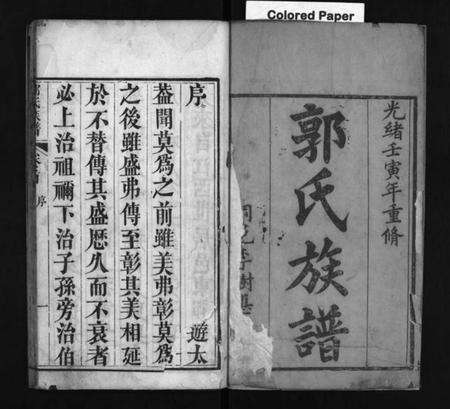 Colored Paper
光緒壬寅年重脩
郭氏族譜
序
遊太
蓋聞莫為之前雖美弗彰莫為
之後雖盛弗傳至彰其美相延
於不替傳其盛歷久而不衰者
必上治祖禰下治子孫旁治伯
序